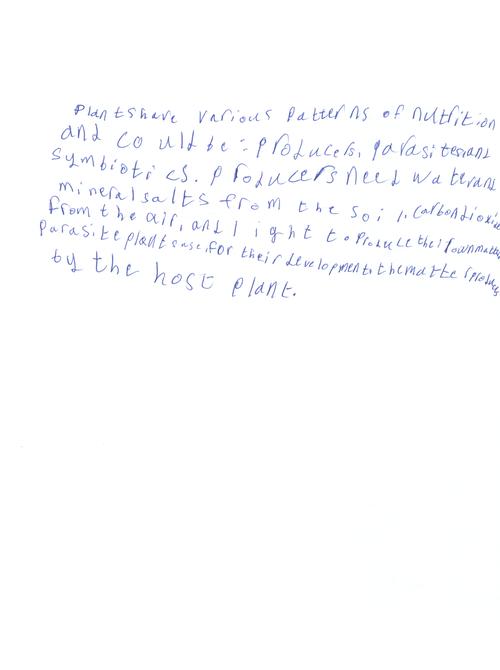 Plants have various Patterns of nutrition
and could be: producers, parasites and
symbiotics. producers need water and
mineral salts from the soil, carbon dioxide
from the air, and light to produce their own matter
parasite plants use, for their development, the matter produces
by the host plant.